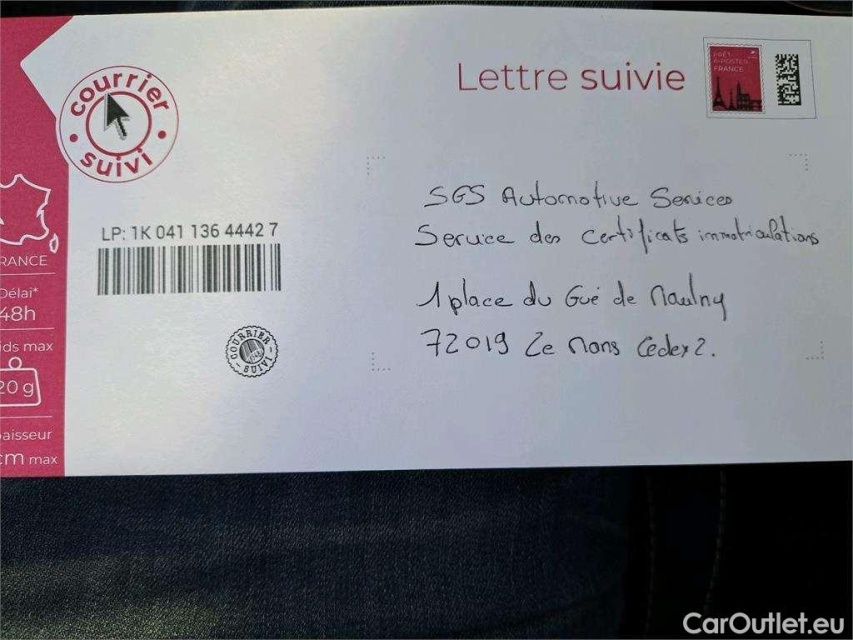 courrier
suivi
Lettre suivie
PRÊT-
À-POSTER
FRANCE
SGS Automotive Services
Service des certificats immatriculations
LP: 1K 041 136 4442 7
1 place du Gué de Maulny
72019 Le Mans Cedex 2.
RANCE
Délai*
48h
COURRIER
SUIVI
ids max
20 g
aisseur
cm max
CarOutlet.eu